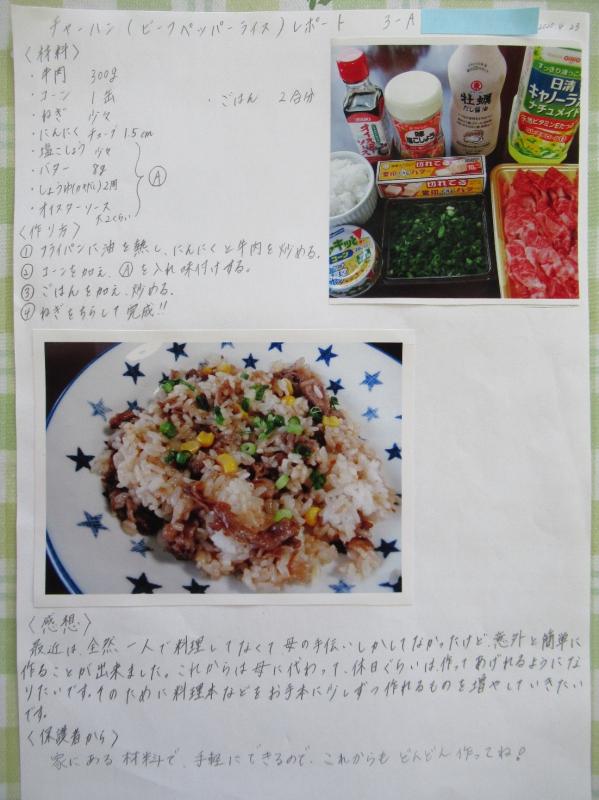 チャーハン(ビーフペッパーライス)レポート 3-A
〈材料〉
・牛肉 300g
・コーン 1缶 ごはん 2合分
・ねぎ 少々
・にんにく チューブ 1.5cm
・塩こしょう 少々
・バター 8g
・しょうゆ 2周
・オイスターソース 大2くらい
Ⓐ
〈作り方〉
① フライパンに油を熱し、にんにくと牛肉を炒める。
② コーンを加え、Ⓐを入れ味付けする。
③ ごはんを加え、炒める。
④ ねぎをちらして完成!!
牡蠣
だし醤油
味
塩こしょう
日清
キャノーラ油
ナチュメイド
切れてる
バター
コーン
〈感想〉
最近は、全然一人で料理してなくて母の手伝いしかしてなかったけど、意外と簡単に
作ることが出来ました。これからは母に代わって、休日ぐらいは、作ってあげれるようにな
りたいです。そのために料理本などをお手本に少しずつ作れるものを増やしていきたい
です。
〈保護者から〉
家にある材料で、手軽にできるので、これからもどんどん作ってね!